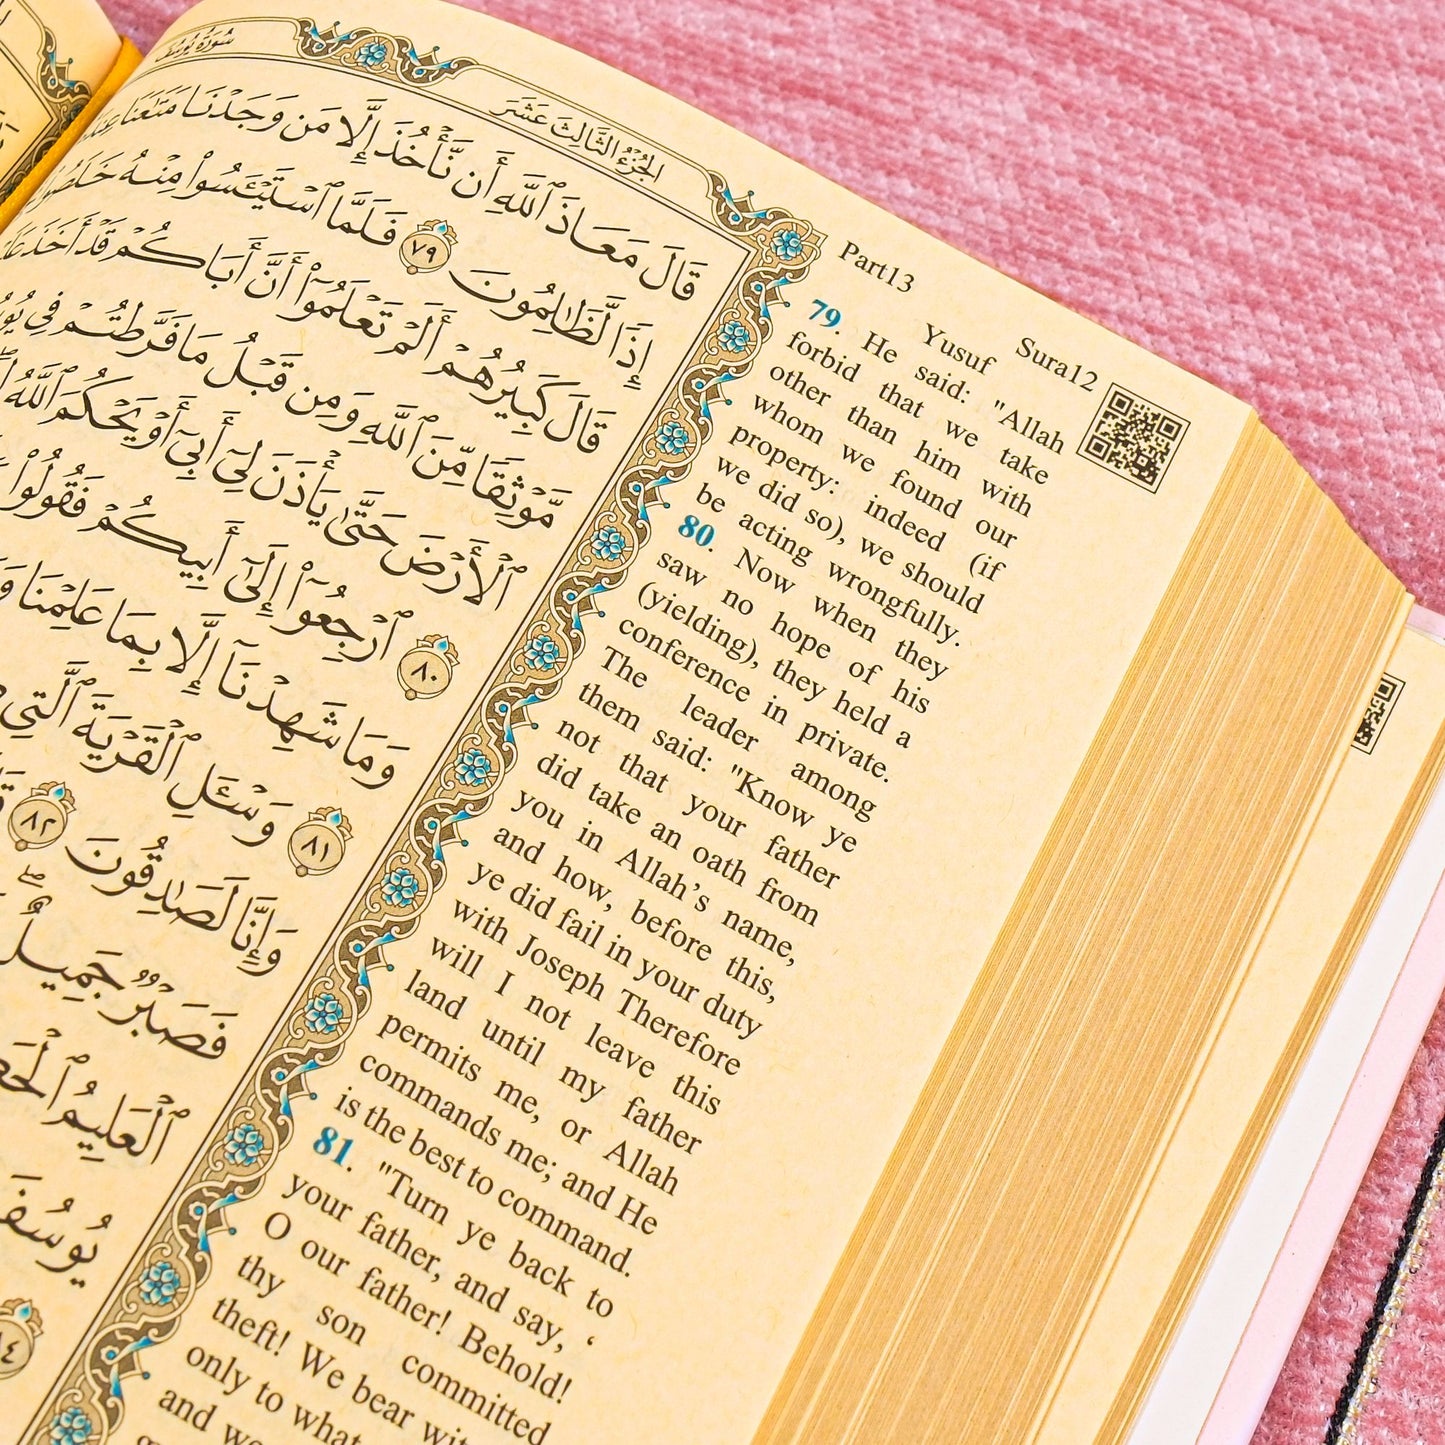 سُورَةُ يُوسُفَ
الجُزْءُ الثَّالِثَ عَشَرَ
قَالَ مَعَاذَ ٱللَّهِ أَن نَّأْخُذَ إِلَّا مَن وَجَدْنَا مَتَٰعَنَا
إِذًا لَّظَٰلِمُونَ ٧٩ فَلَمَّا ٱسْتَيْـَٔسُوا۟ مِنْهُ
قَالَ كَبِيرُهُمْ أَلَمْ تَعْلَمُوٓا۟ أَنَّ أَبَاكُمْ قَدْ أَخَذَ
مَّوْثِقًا مِّنَ ٱللَّهِ وَمِن قَبْلُ مَا فَرَّطتُمْ فِى
ٱلْأَرْضَ حَتَّىٰ يَأْذَنَ لِىٓ أَبِىٓ أَوْ يَحْكُمَ ٱللَّهُ
ٱرْجِعُوٓا۟ إِلَىٰٓ أَبِيكُمْ فَقُولُوا۟
٨٠
وَمَا شَهِدْنَآ إِلَّا بِمَا عَلِمْنَا
٨١ وَسْـَٔلِ ٱلْقَرْيَةَ ٱلَّتِى
وَإِنَّا لَصَٰدِقُونَ ٨٢
فَصَبْرٌ جَمِيلٌ
ٱلْعَلِيمُ
يُوسُفَ
Part13 Yusuf Sura12
79. He said: "Allah
forbid that we take
other than him with
whom we found our
property: indeed (if
we did so), we should
be acting wrongfully.
80. Now when they
saw no hope of his
(yielding), they held a
conference in private.
The leader among
them said: "Know ye
not that your father
did take an oath from
you in Allah’s name,
and how, before this,
ye did fail in your duty
with Joseph Therefore
will I not leave this
land until my father
permits me, or Allah
commands me; and He
is the best to command.
81. "Turn ye back to
your father, and say, ‘
O our father! Behold!
thy son committed
theft! We bear
only to what
and